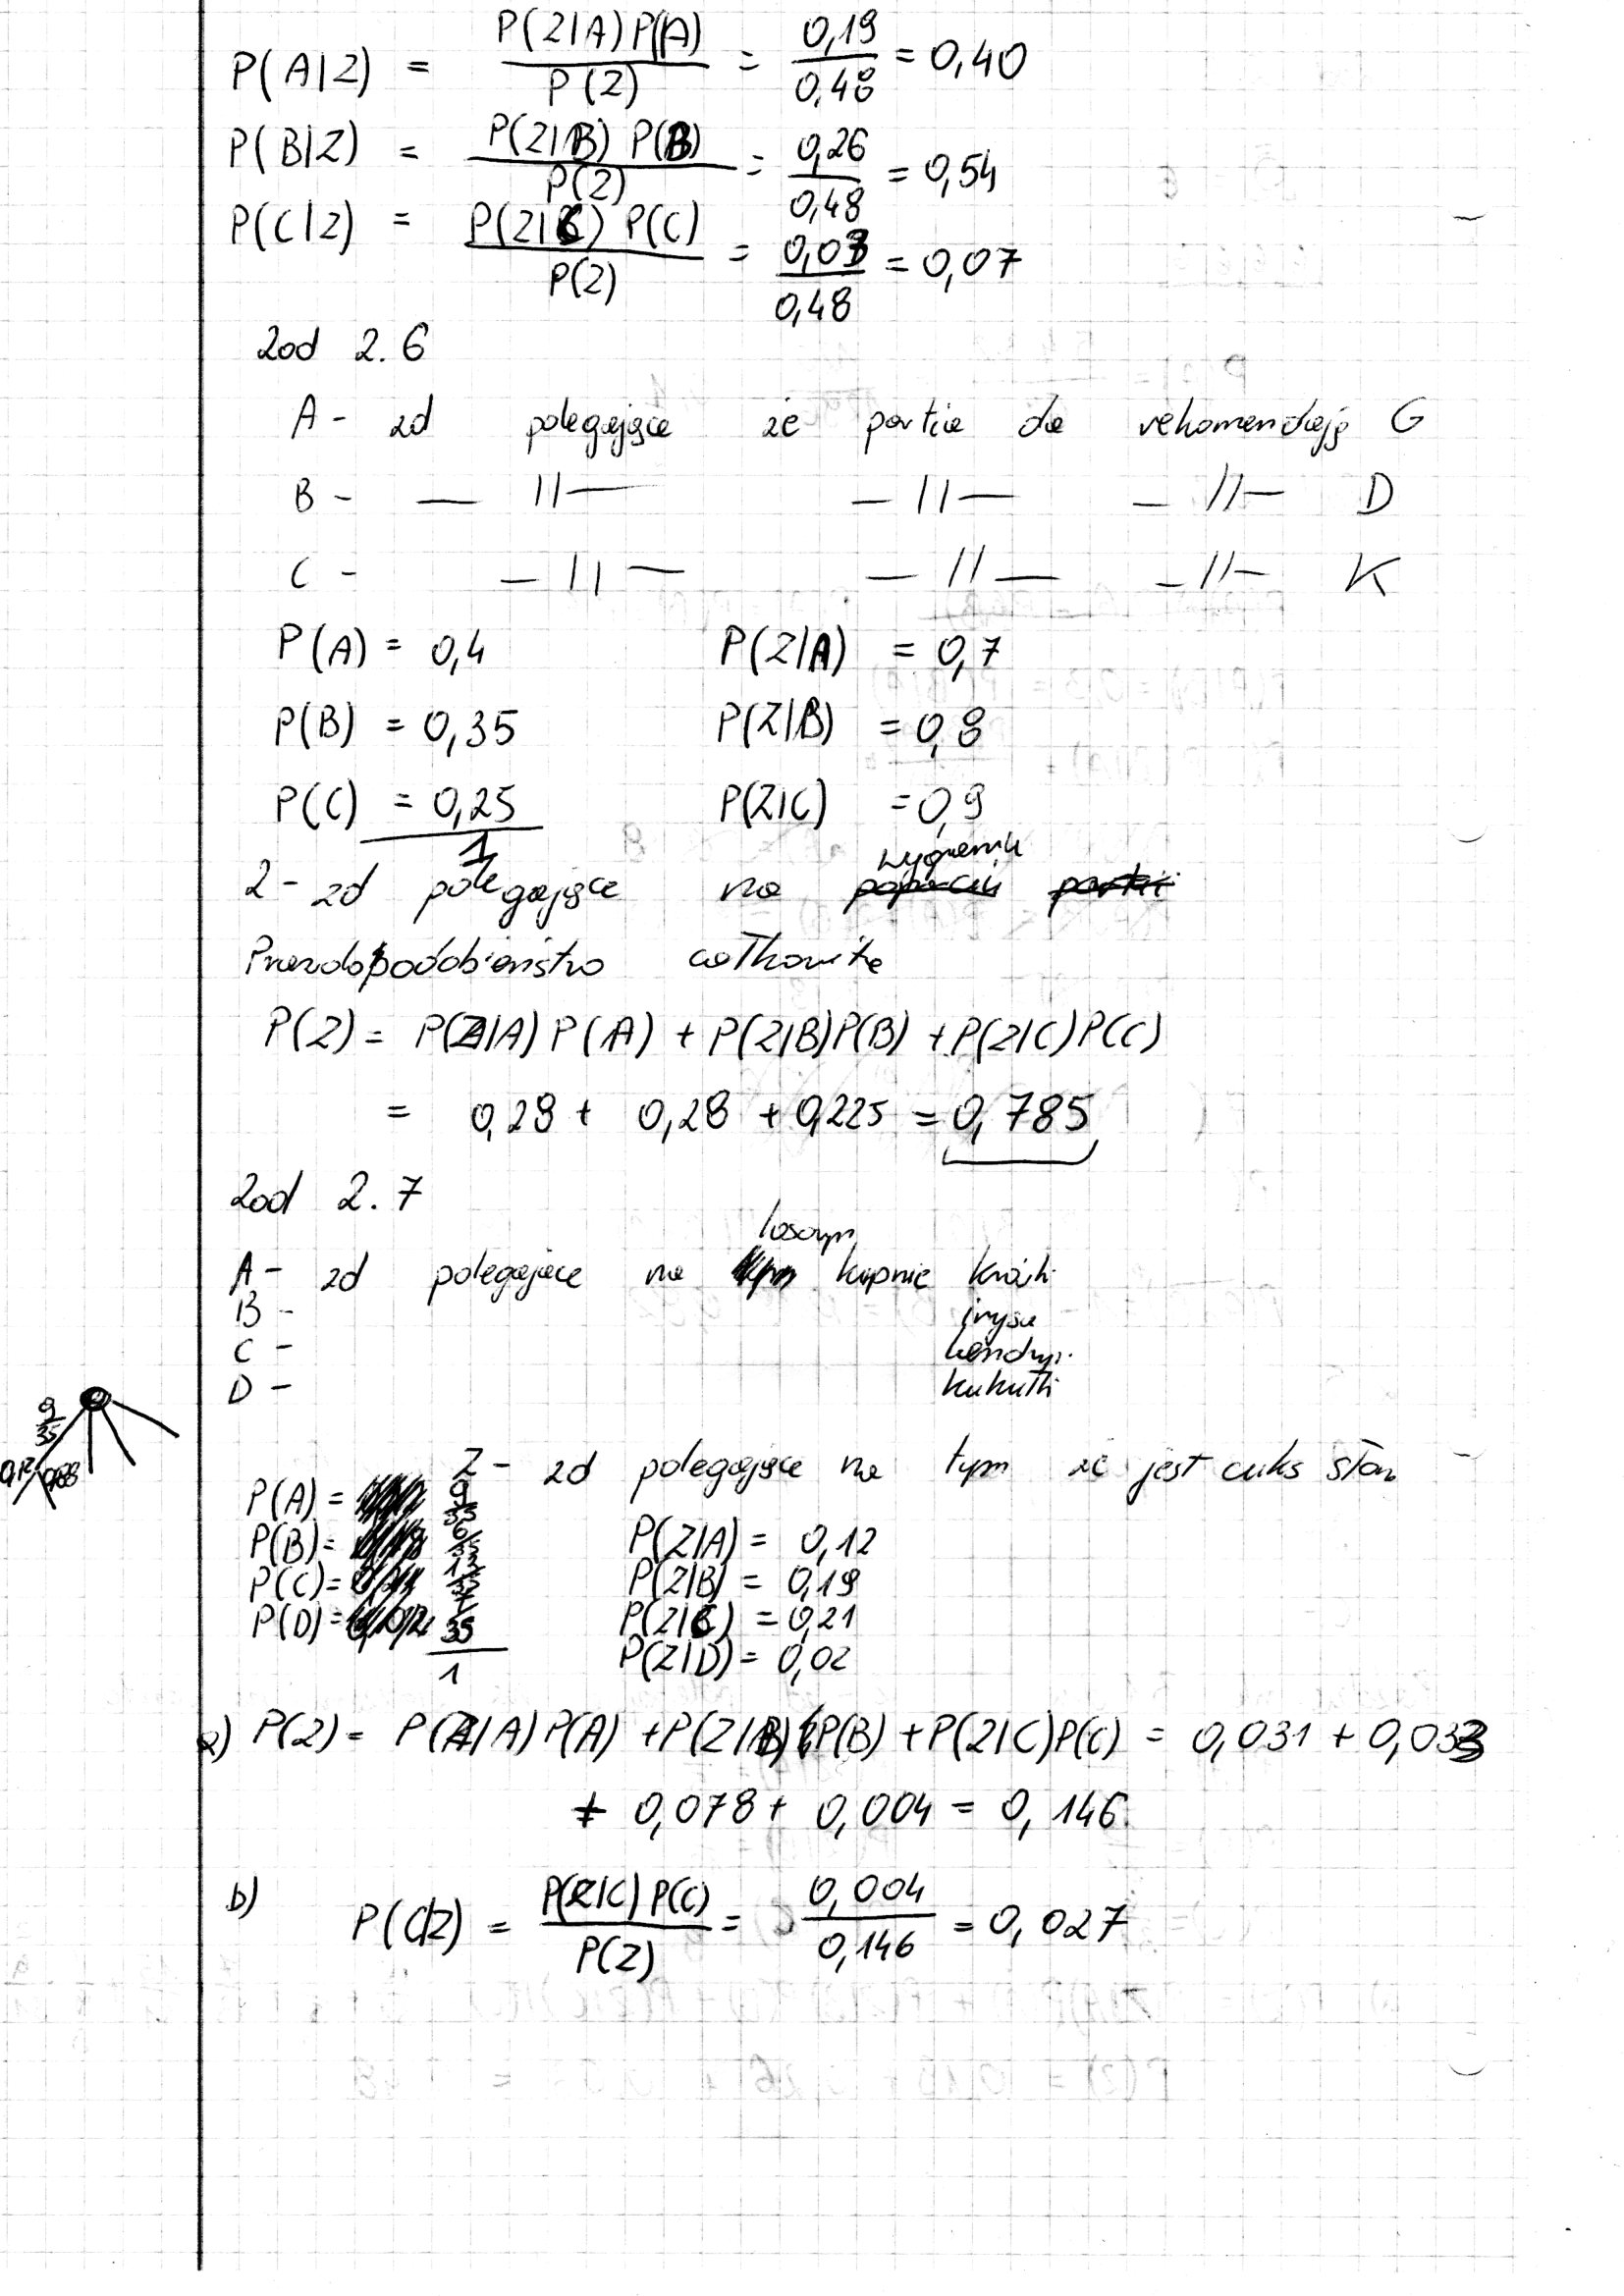 P(A|Z) = P(Z|A)P(A) / P(Z) = 0,19 / 0,48 = 0,40
P(B|Z) = P(Z|B) P(B) / P(Z) = 0,26 / 0,48 = 0,54
P(C|Z) = P(Z|C) P(C) / P(Z) = 0,03 / 0,48 = 0,07
Zad 2.6
A - zd polegające że partia da rekomendację G
B - — || — — || — — || — D
C - — || — — || — — || — K
P(A) = 0,4 P(Z|A) = 0,7
P(B) = 0,35 P(Z|B) = 0,8
P(C) = 0,25 P(Z|C) = 0,9
1
Z - zd polegające na wygraniu
Prawdopodobieństwo całkowite
P(Z) = P(Z|A) P(A) + P(Z|B)P(B) + P(Z|C)P(C)
= 0,28 + 0,28 + 0,225 = 0,785
Zad 2.7
A - zd polegające na losowym kupnie krówki
B - irysa
C -
D - kukułki
9/35
0,12 0,88
Z - zd polegające na tym że jest cuks
P(A) = 9/35
P(B) = 6/35 P(Z|A) = 0,12
P(C) = 13/35 P(Z|B) = 0,19
P(D) = 7/35 P(Z|C) = 0,21
1 P(Z|D) = 0,02
a) P(Z) = P(Z|A) P(A) + P(Z|B) P(B) + P(Z|C)P(C) = 0,031 + 0,033
+ 0,078 + 0,004 = 0,146
b) P(C|Z) = P(Z|C) P(C) / P(Z) = 0,004 / 0,146 = 0,027